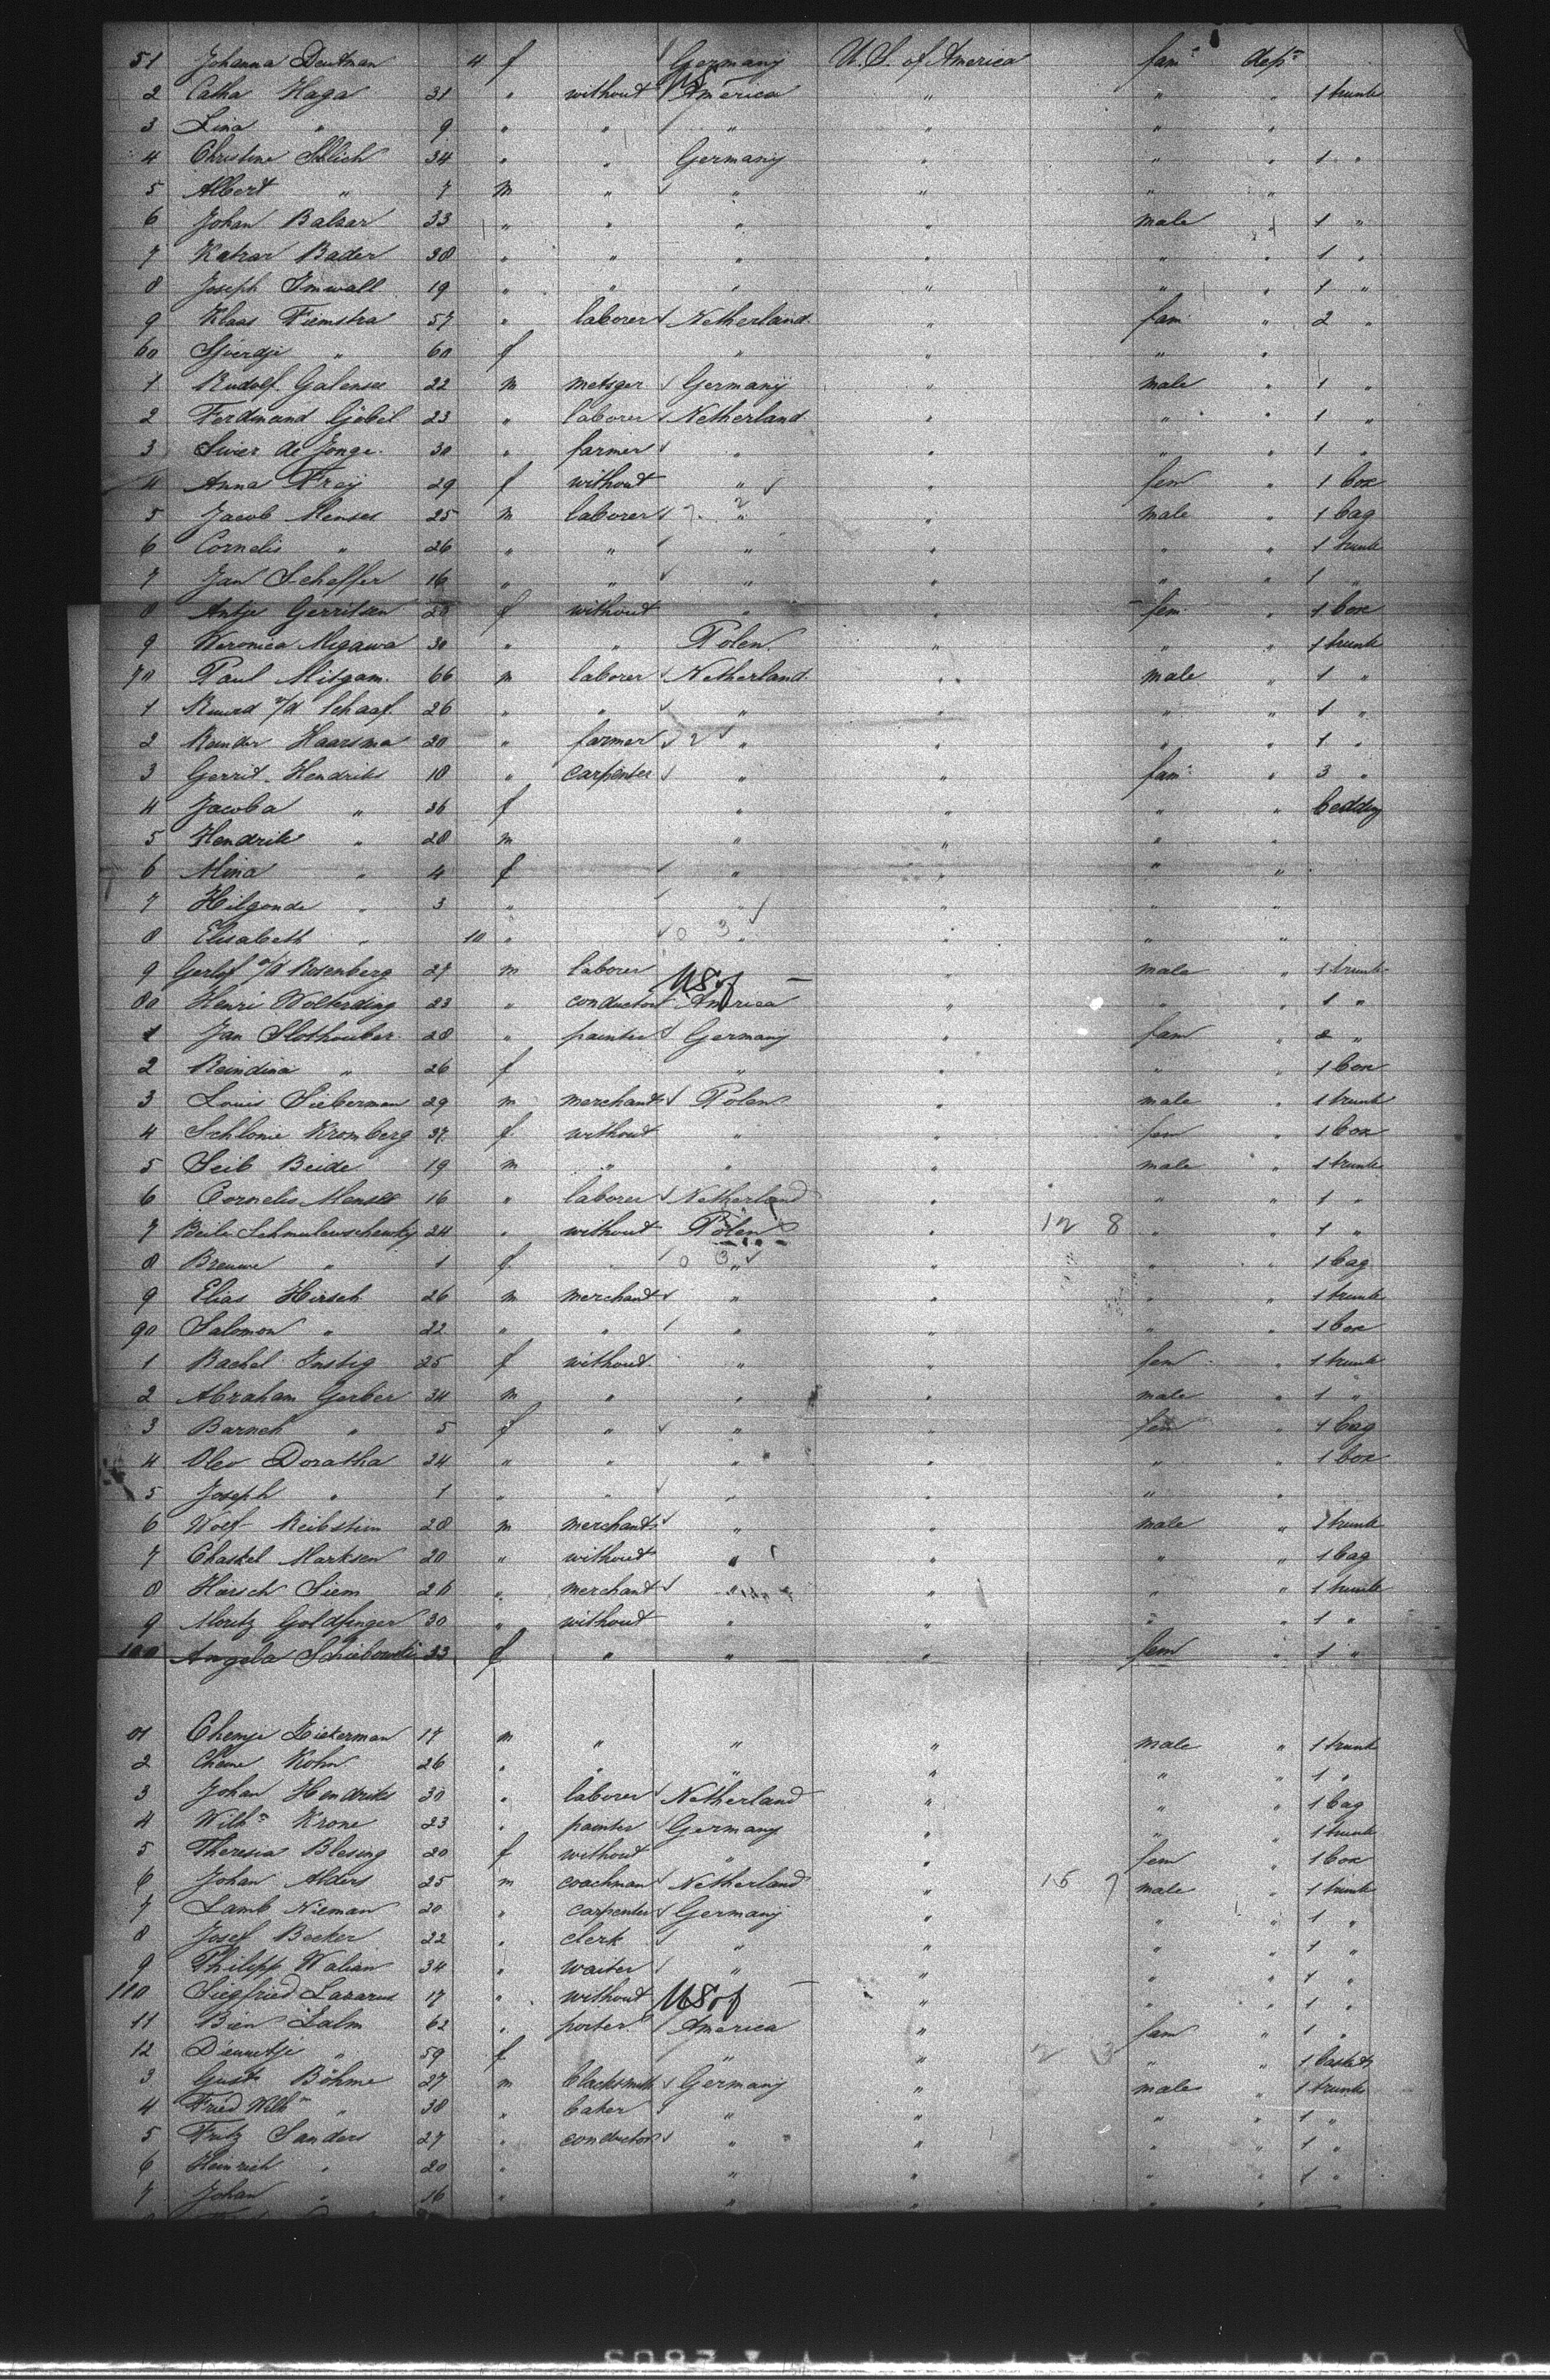 51 Johanna Deutman 4 f Germany U.S. of America fam dep
2 Catha Haga 31 " without US America " " " 1 trunk
3 Lina " 9 " " " " " "
4 Christine Ihlich 34 " " Germany " " " 1 "
5 Albert " 7 m " " " " "
6 Johan Balzar 33 " " " " male " 1 "
7 Katzar Bader 38 " " " " " " 1 "
8 Joseph Imwall 19 " " " " " " 1 "
9 Klaas Fiemstra 57 " laborer Netherland " fam " 2 "
60 Sjoerdje " 60 f " " " "
1 Rudolf Galensee 22 m metzger Germany " male " 1 "
2 Ferdinand Gjebel 23 " laborer Netherland " " " 1 "
3 Siever de Jonge 30 " farmer " " " " 1 "
4 Anna Freij 29 f without " " fem " 1 box
5 Jacob Menses 25 m laborer " " male " 1 bag
6 Cornelis " 26 " " " " " " 1 trunk
7 Jan Scheffer 16 " " " " " " 1 "
8 Antje Gerritsen 28 f without " " fem " 1 box
9 Weronica Migawa 30 " " Polen " " " 1 trunk
70 Paul Mitgam 66 m laborer Netherland " male " 1 "
1 Ruurd v/d Schaaf 26 " " " " " " 1 "
2 Reinder Haarsma 20 " farmer " " " " 1 "
3 Gerrit Hendriks 18 " carpenter " " fam " 3 "
4 Jacoba " 36 f " " " " bedding
5 Hendrik " 28 m " " " "
6 Mina " 4 f " " " "
7 Hilgonde " 3 " " " " "
8 Elisabeth " 10 " 0 3 " " " "
9 Gerlof v/d Rosenberg 27 m laborer " male " 1 trunk
80 Henri Wolterding 23 " conductor US of America " " " 1 "
1 Jan Slothouber 28 " painter Germany " fam " 2 "
2 Reindina " 26 f " " " 1 box
3 Louis Lieberman 29 m merchant Polen " male " 1 trunk
4 Schlonie Kromberg 37 f without " " fem " 1 box
5 Leib Beide 19 m " " " male " 1 trunk
6 Cornelis Menses 16 " laborer Netherland " " " 1 "
7 Beile Schmulewschewsky 24 " without Polen " 12 8 " " 1 "
8 " 1 f 0 3 " " " " 1 bag
9 Elias Hirsch 26 m merchant " " " " 1 trunk
90 Salomon " 22 " " " " " " 1 box
1 Rachel Instig 25 f without " " fem " 1 trunk
2 Abraham Gerber 34 m " " " male " 1 "
3 Barneh " 5 f " " " fem " 1 bag
4 Olev Doratha 24 " " " " " " 1 box
5 Joseph " 1 " " " " " "
6 Wolf Reibstein 28 m merchant " " male " 1 trunk
7 Chaskel Marksen 20 " without " " " " 1 bag
8 Hirsch Siem 26 " merchant " " " " 1 trunk
9 Moritz Goldfinger 30 " without " " " " 1 "
100 Angela 23 f " " " fem " 1 "
01 Chemje Zickerman 17 m " " " male " 1 trunk
2 Cheme Kohn 26 " " " " " " 1 "
3 Johan Hendriks 30 " laborer Netherland " " " 1 bag
4 Wilhm Krone 23 " painter Germany " " " 1 trunk
5 Theresia Blesing 20 f without " " fem " 1 box
6 Johan Alders 25 m coachman Netherland " 15 7 male " 1 trunk
7 Lamb Nieman 20 " carpenter Germany " " " 1 "
8 Josef Becker 22 " clerk " " " " 1 "
9 Philipp Walian 34 " waiter " " " " 1 "
110 Siegfried Lazarus 17 " without US of " " " 1 "
11 Bien Zalm 62 " porter America " fam " 1 "
12 Dieuwetje " 59 f " " 2 3 " " 1 basket
3 Gust Böhme 27 m blacksmith Germany " male " 1 trunk
4 Fried Wilh " 38 " baker " " " " 1 "
5 Fritz Sanders 27 " conductor " " " " 1 "
6 Heinrich " 20 " " " " " 1 "
7 Johan " 16 " " " " "